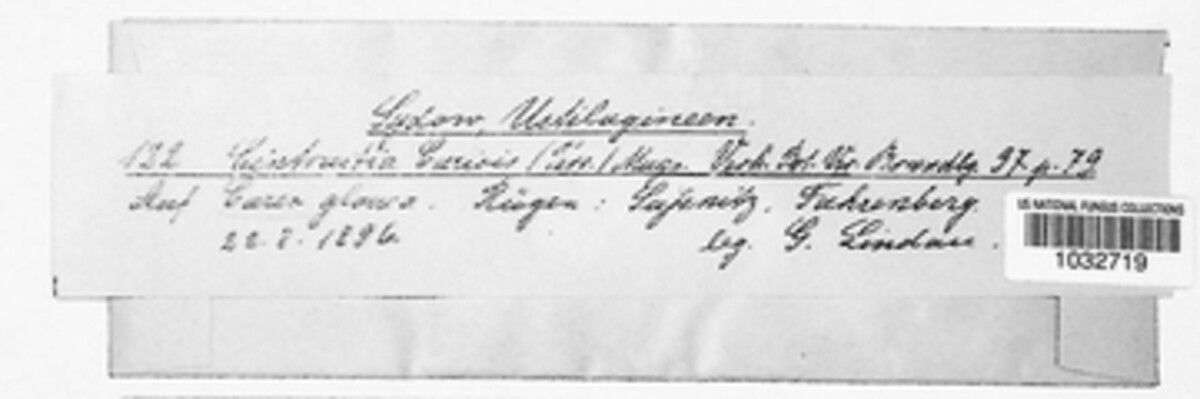 Sydow, Ustilagineen.
122 Cintractia Caricis (Pers.) Magn. Verh. Bot. Ver. Brandbg. 37. p. 79
Auf Carex glauca. Rügen: Saßnitz, Fahrenberg.
1896. leg. G. Lindau.
US NATIONAL FUNGUS COLLECTIONS
1032719